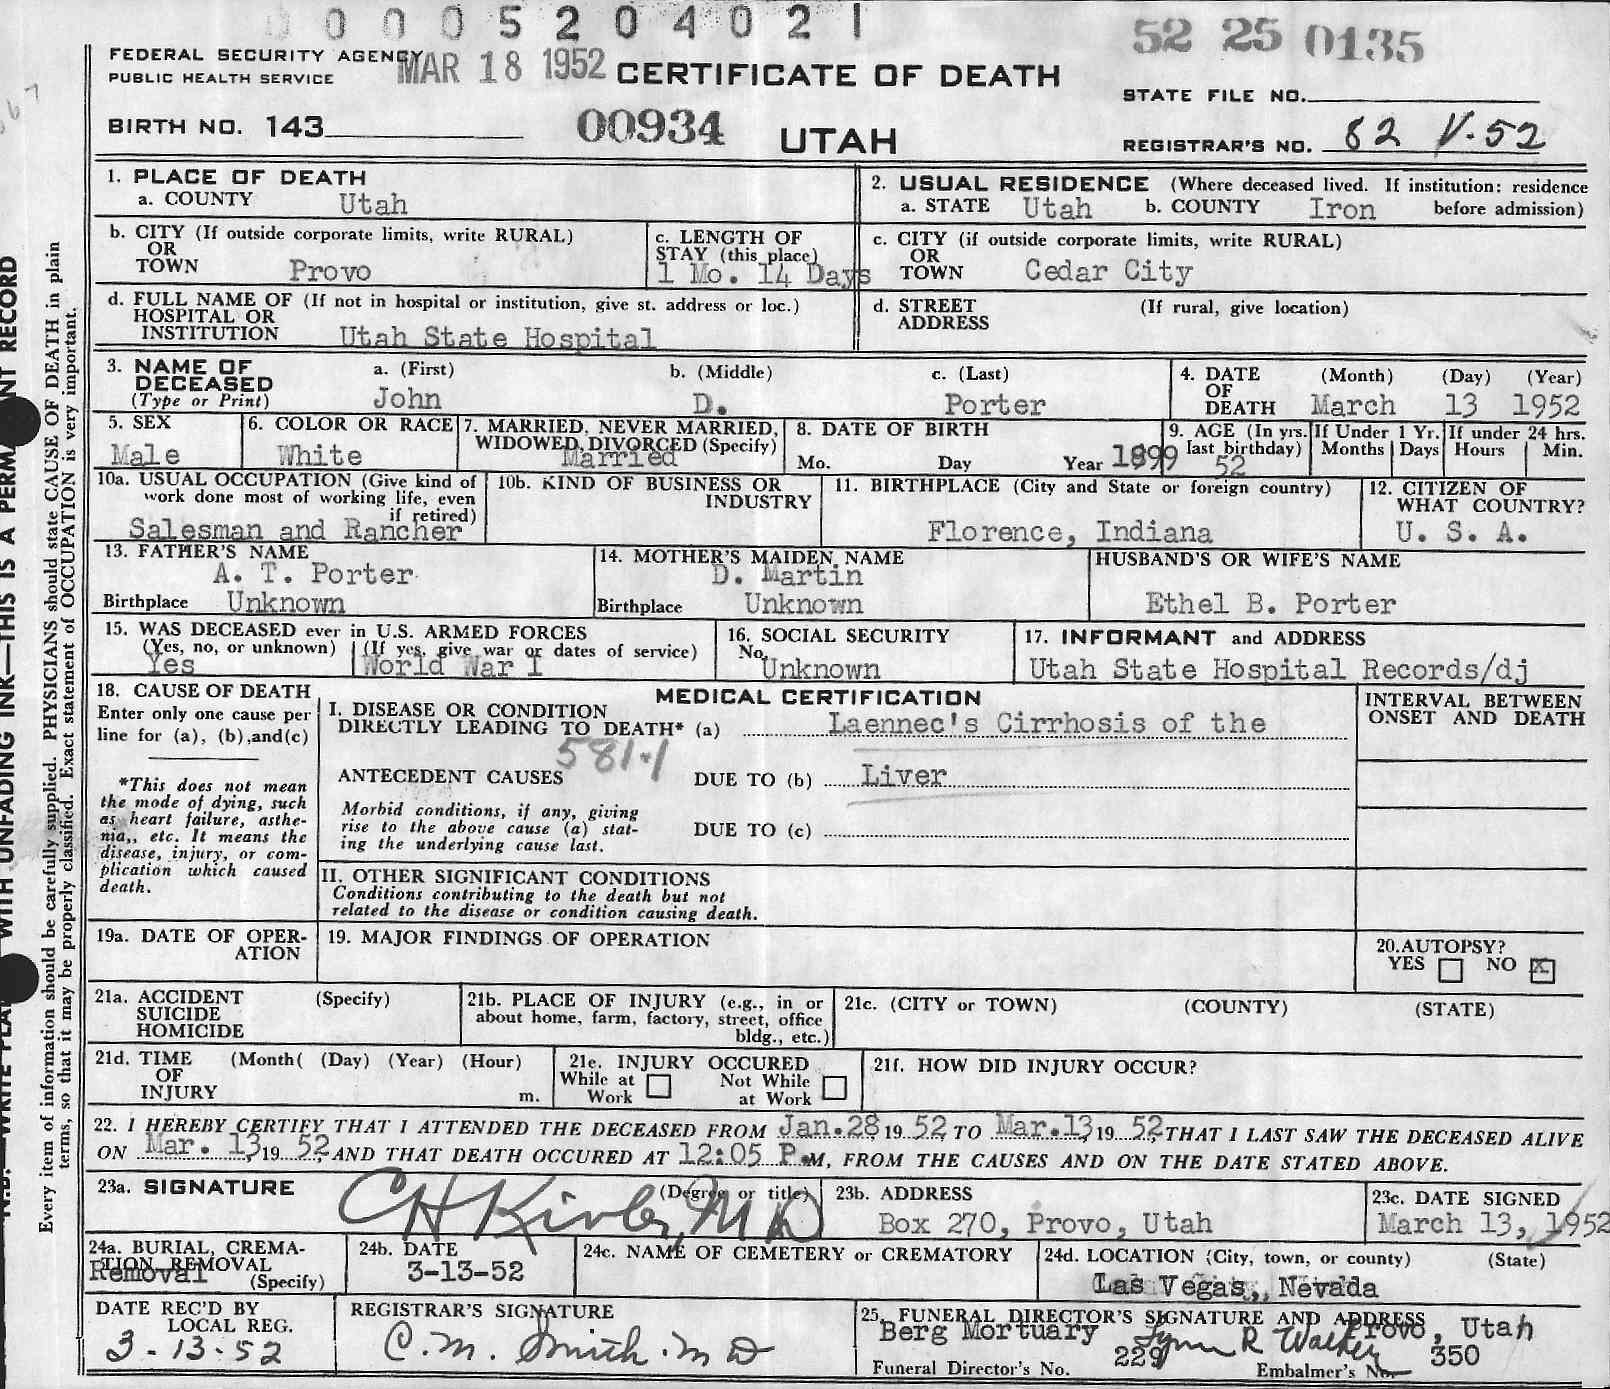 0 0 0 5 2 0 4 0 2 1
52 25 0135
FEDERAL SECURITY AGENCY
PUBLIC HEALTH SERVICE
MAR 18 1952
CERTIFICATE OF DEATH
STATE FILE NO.
BIRTH NO. 143
00934
UTAH
REGISTRAR'S NO. 82 V-52
1. PLACE OF DEATH
a. COUNTY Utah
2. USUAL RESIDENCE (Where deceased lived. If institution: residence before admission)
a. STATE Utah b. COUNTY Iron
b. CITY (If outside corporate limits, write RURAL)
OR
TOWN Provo
c. LENGTH OF
STAY (this place)
1 Mo. 14 Days
c. CITY (if outside corporate limits, write RURAL)
OR
TOWN Cedar City
d. FULL NAME OF (If not in hospital or institution, give st. address or loc.)
HOSPITAL OR
INSTITUTION Utah State Hospital
d. STREET (If rural, give location)
ADDRESS
3. NAME OF
DECEASED
(Type or Print)
a. (First) b. (Middle) c. (Last)
John D. Porter
4. DATE (Month) (Day) (Year)
OF
DEATH March 13 1952
5. SEX
Male
6. COLOR OR RACE
White
7. MARRIED, NEVER MARRIED,
WIDOWED, DIVORCED (Specify)
Married
8. DATE OF BIRTH
Mo. Day Year 1899
9. AGE (In yrs.
last birthday)
52
If Under 1 Yr.
Months Days
If under 24 hrs.
Hours Min.
10a. USUAL OCCUPATION (Give kind of
work done most of working life, even
if retired)
Salesman and Rancher
10b. KIND OF BUSINESS OR
INDUSTRY
11. BIRTHPLACE (City and State or foreign country)
Florence, Indiana
12. CITIZEN OF
WHAT COUNTRY?
U. S. A.
13. FATHER'S NAME
A. T. Porter
Birthplace Unknown
14. MOTHER'S MAIDEN NAME
D. Martin
Birthplace Unknown
HUSBAND'S OR WIFE'S NAME
Ethel B. Porter
15. WAS DECEASED ever in U.S. ARMED FORCES
(Yes, no, or unknown) (If yes, give war or dates of service)
Yes World War I
16. SOCIAL SECURITY
No.
Unknown
17. INFORMANT and ADDRESS
Utah State Hospital Records/dj
18. CAUSE OF DEATH
Enter only one cause per
line for (a), (b),and(c)
*This does not mean
the mode of dying, such
as heart failure, asthe-
nia,, etc. It means the
disease, injury, or com-
plication which caused
death.
MEDICAL CERTIFICATION
INTERVAL BETWEEN
ONSET AND DEATH
I. DISEASE OR CONDITION
DIRECTLY LEADING TO DEATH* (a) Laennec's Cirrhosis of the
581.1
ANTECEDENT CAUSES DUE TO (b) Liver
Morbid conditions, if any, giving
rise to the above cause (a) stat-
ing the underlying cause last.
DUE TO (c)
II. OTHER SIGNIFICANT CONDITIONS
Conditions contributing to the death but not
related to the disease or condition causing death.
19a. DATE OF OPER-
ATION
19. MAJOR FINDINGS OF OPERATION
20.AUTOPSY?
YES NO X
21a. ACCIDENT (Specify)
SUICIDE
HOMICIDE
21b. PLACE OF INJURY (e.g., in or
about home, farm, factory, street, office
bldg., etc.)
21c. (CITY or TOWN) (COUNTY) (STATE)
21d. TIME (Month( (Day) (Year) (Hour)
OF
INJURY m.
21e. INJURY OCCURED
While at Work Not While at Work
21f. HOW DID INJURY OCCUR?
22. I HEREBY CERTIFY THAT I ATTENDED THE DECEASED FROM Jan.28, 19 52, TO Mar.13, 19 52, THAT I LAST SAW THE DECEASED ALIVE
ON Mar. 13, 19 52, AND THAT DEATH OCCURED AT 12:05 P.M, FROM THE CAUSES AND ON THE DATE STATED ABOVE.
23a. SIGNATURE (Degree or title)
C H Kirby, M D
23b. ADDRESS
Box 270, Provo, Utah
23c. DATE SIGNED
March 13, 1952
24a. BURIAL, CREMA-
TION, REMOVAL
(Specify)
Removal
24b. DATE
3-13-52
24c. NAME OF CEMETERY or CREMATORY
24d. LOCATION (City, town, or county) (State)
Las Vegas,, Nevada
DATE REC'D BY
LOCAL REG.
3-13-52
REGISTRAR'S SIGNATURE
C. M. Smith. M D
25. FUNERAL DIRECTOR'S SIGNATURE AND ADDRESS
Berg Mortuary Provo, Utah
Lynn R Walker
229 350
Funeral Director's No. Embalmer's No.
Every item of information should be carefully supplied. PHYSICIANS should state CAUSE OF DEATH in plain
terms, so that it may be properly classified. Exact statement of OCCUPATION is very important.
WITH UNFADING INK—THIS IS A
RECORD